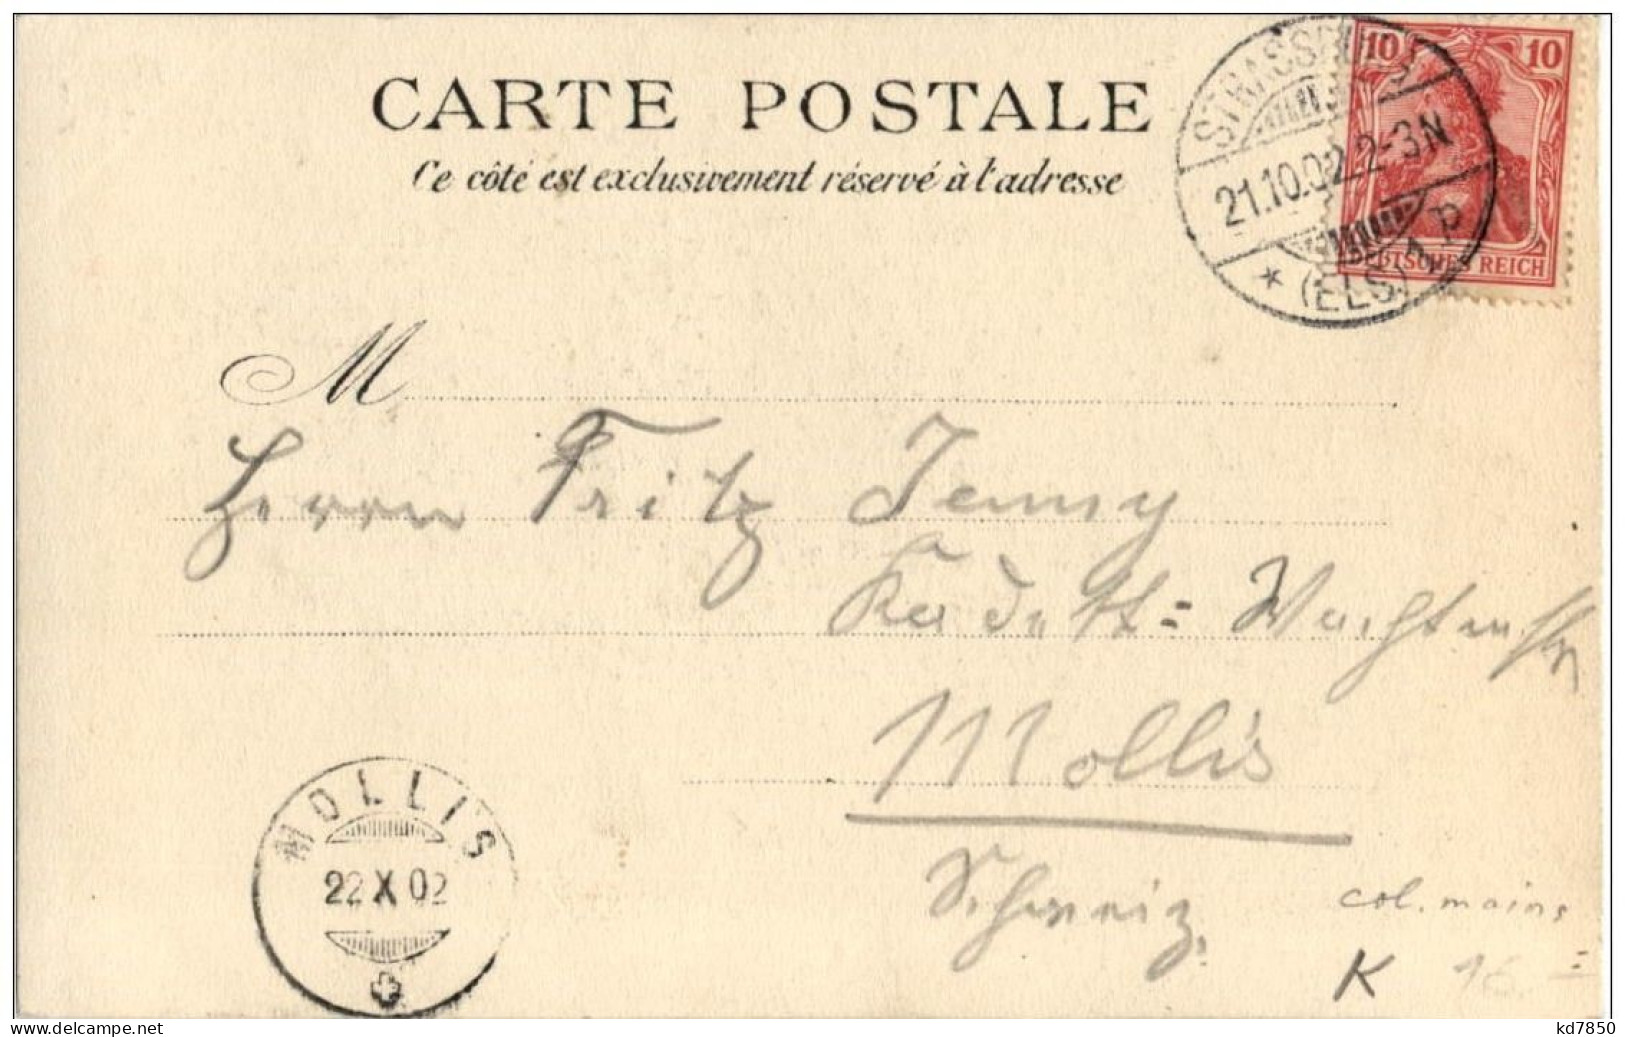 CARTE POSTALE
Ce côté est exclusivement réservé à l'adresse
STRASSBURG
21.10.02.2-3N
* (ELS.) 1 P
10 10
DEUTSCHES REICH
M
Herrn Fritz Jenny
Kadett=
Mollis
Schweiz.
MOLLIS
22 X 02
col. mains
K 16
www.delcampe.net
kd7850